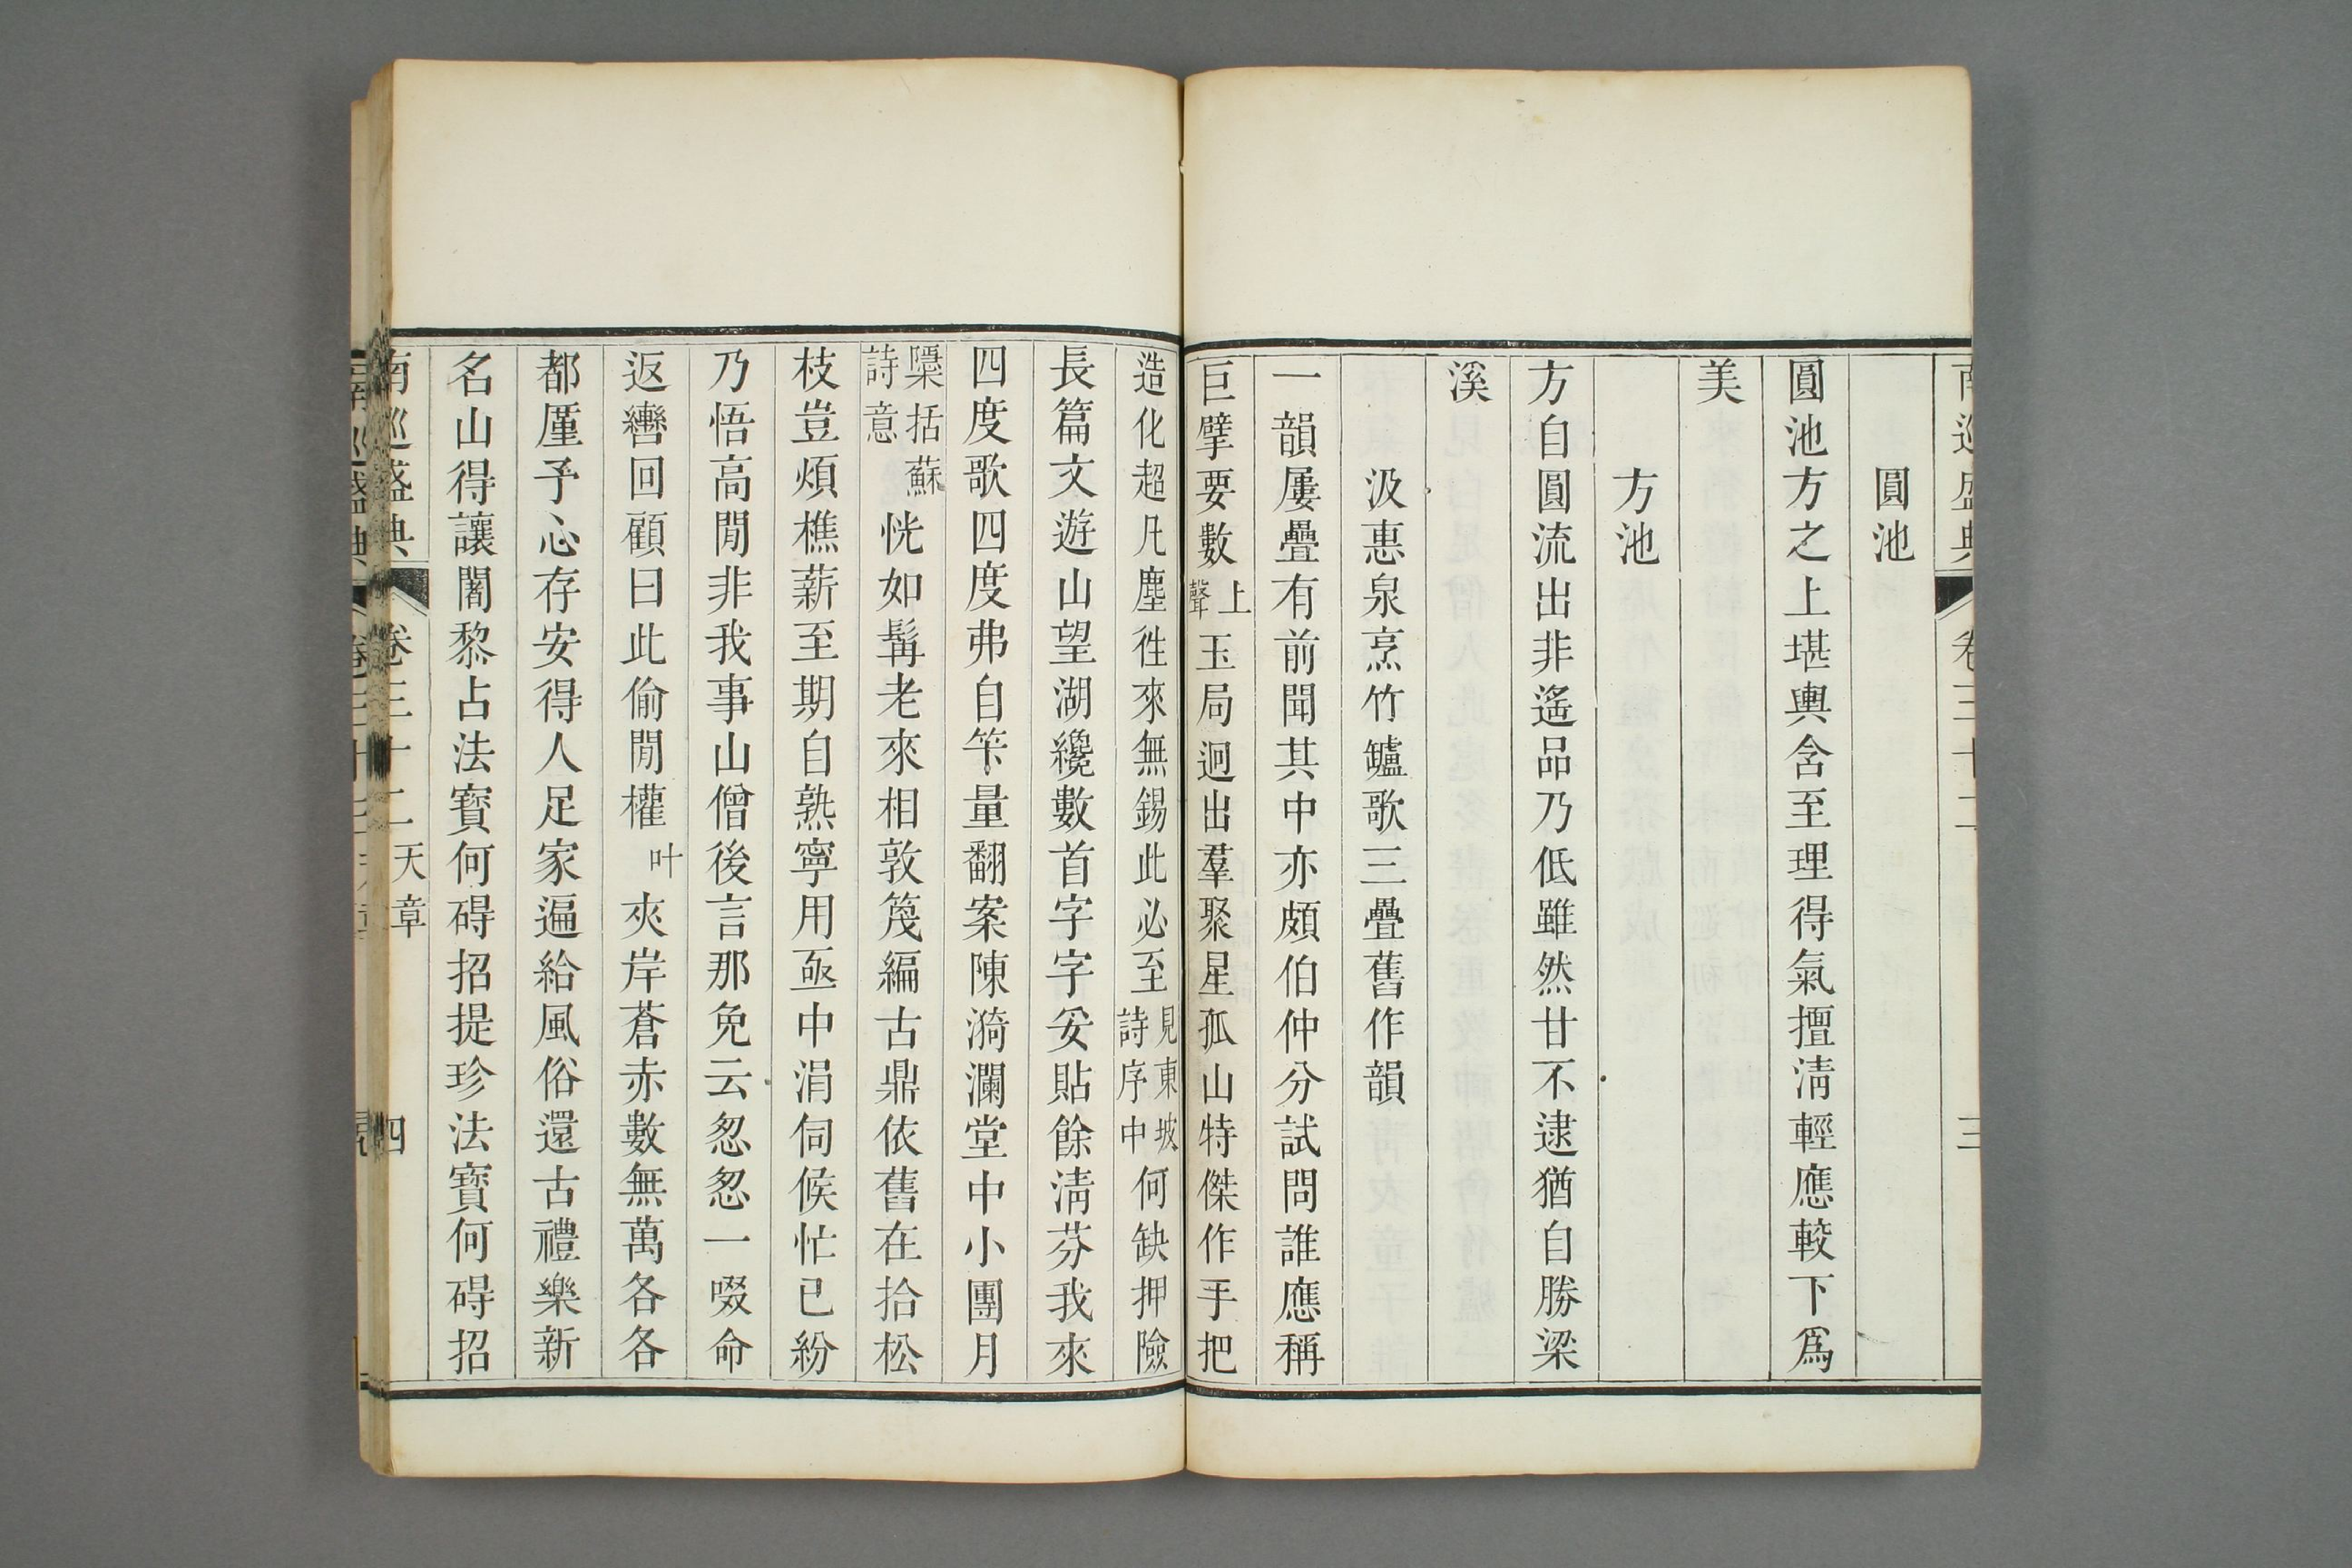 南巡盛典 卷三十二 三
圓池
圓池方之上堪輿含至理得氣擅淸輕應較下爲
美
方池
方自圓流出非遙品乃低雖然甘不逮猶自勝梁
溪
汲惠泉烹竹罏歌三疊舊作韻
一韻屢疊有前聞其中亦頗伯仲分試問誰應稱
巨擘要數上聲玉局迥出羣聚星孤山特傑作手把
造化超凡塵徃來無錫此必至見東坡詩序中何缺押險
長篇文遊山望湖纔數首字字妥貼餘淸芬我來
四度歌四度弗自笇量翻案陳漪瀾堂中小團月
檃括蘇詩意恍如髯老來相敦笵編古鼎依舊在拾松
枝豈煩樵薪至期自熟寧用亟中涓伺候忙已紛
乃悟高閒非我事山僧後言那免云忽忽一啜命
返轡回顧曰此偷閒權叶夾岸蒼赤數無萬各各
都厪予心存安得人足家遍給風俗還古禮樂新
名山得讓闍黎占法寶何碍招提珍法寶何碍招
南巡盛典 卷三十二 天章 四